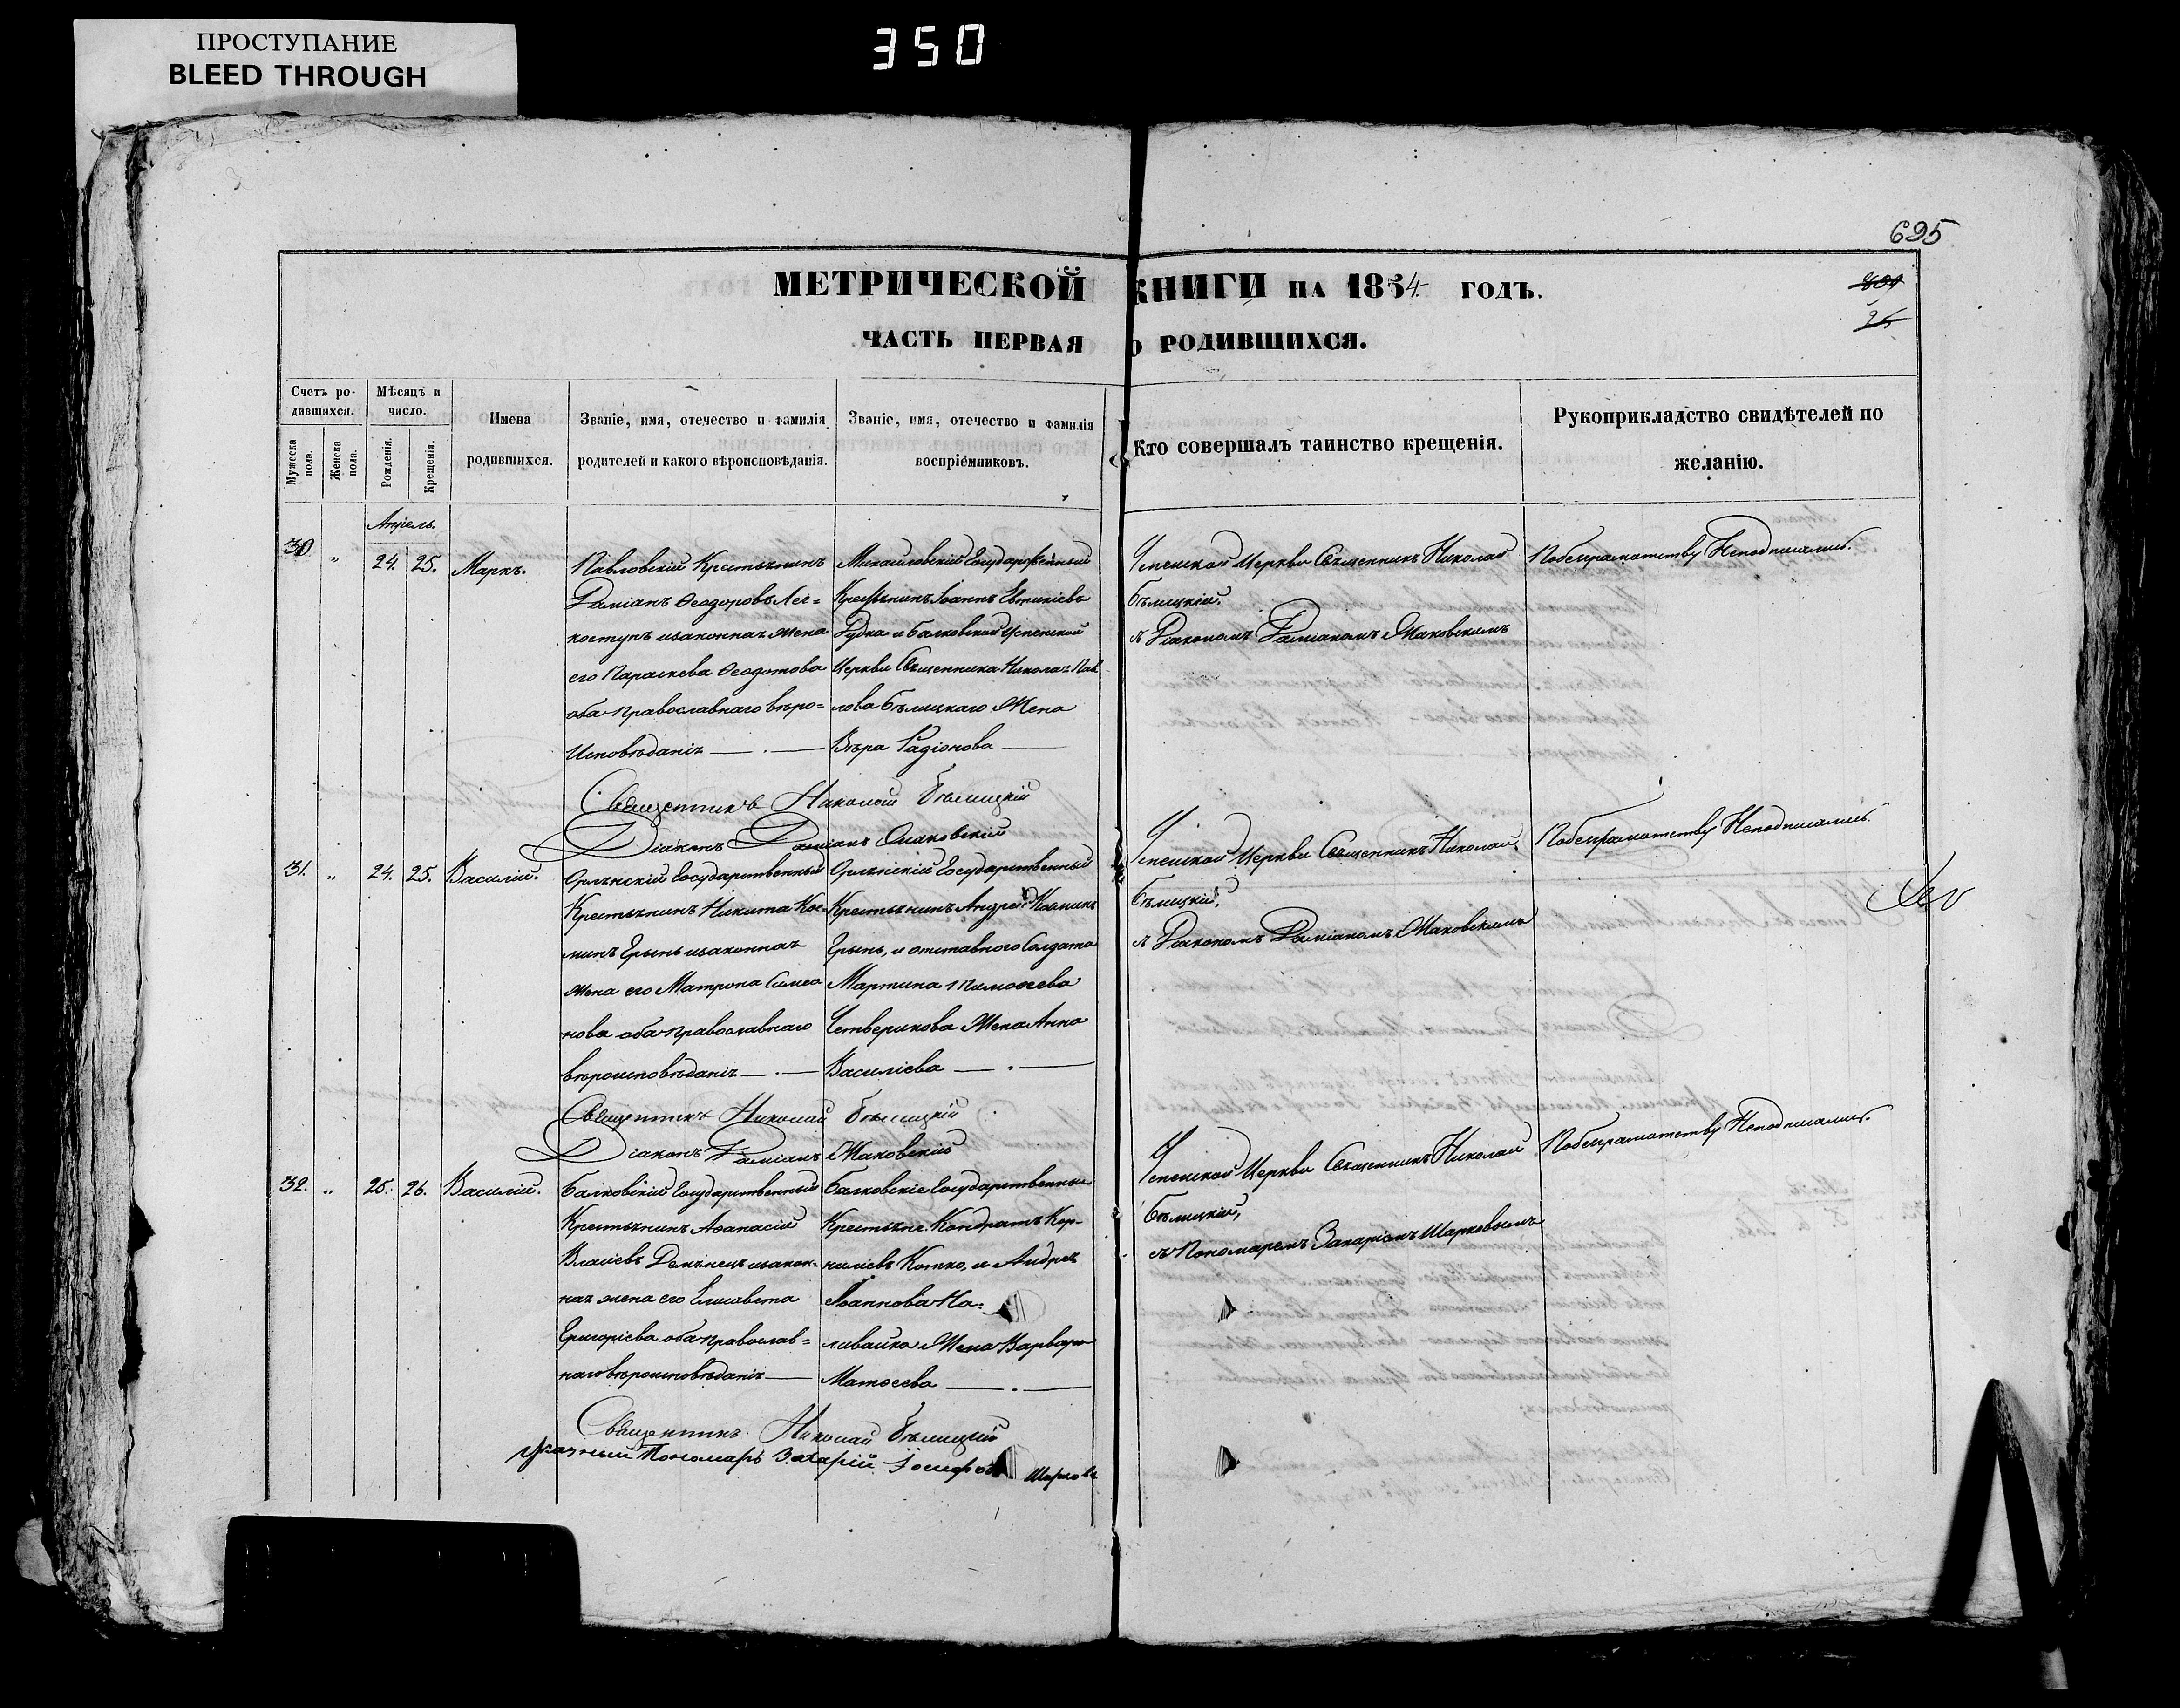 ПРОСТУПАНИЕ
BLEED THROUGH
350
695
МЕТРИЧЕСКОЙ КНИГИ НА 1854 ГОДЪ.
801
26
ЧАСТЬ ПЕРВАЯ О РОДИВШИХСЯ.
Счетъ родившихся.
Мужеска пола.
Женска пола.
Мѣсяцъ и число.
Рожденія.
Крещенія.
Имена родившихся.
Званіе, имя, отечество и фамилія родителей и какого вѣроисповѣданія.
Званіе, имя, отечество и фамилія воспріемниковъ.
Кто совершалъ таинство крещенія.
Рукоприкладство свидѣтелей по желанію.
Апрель.
30. " 24. 25. Маркъ.
Павловскій Крестьянинъ
Даміанъ Ѳеодоровъ Лег=
коступъ изаконная жена
его Параскева Ѳеодотова
оба православнаго вѣро=
Исповѣданія
Михайловскій Государственный
Крестьянинъ Іоаннъ Евтихіевъ
Рудка и Балковской Успенской
Церкви Священника Николая Пав
лова Бѣлицкаго Жена
Вѣра Радіонова
Успенской Церкви Священникъ Николай
Бѣлицкій.
съ Діакономъ Даміаномъ Маковскимъ
Побезграматству Неподписались.
Священникъ Николай Бѣлицкій
Діаконъ Даміанъ Маковскій
31. " 24. 25. Василій.
Орлянскій Государственный
Крестьянинъ Никита Кос
минъ Ерынь изаконная
жена его Матрона Симео
нова оба православнаго
вѣроисповѣданія
Орлянскій Государственный
Крестьянинъ Андрей Косминъ
Ерынь, и отставного Солдата
Мартина Тимоѳеева
Четверикова Жена Анна
Василіева
Успенской Церкви Священникъ Николай
Бѣлицкій,
съ Діакономъ Даміаномъ Маковскимъ
Побезграматству Неподписались.
Священникъ Николай Бѣлицкій
Діаконъ Даміанъ Маковскій
32. " 25. 26. Василій.
Балковскій Государственный
Крестьянинъ Аѳанасій
Власіевъ изакон=
ная жена его Елисавета
Григоріева оба православ=
наго вѣроисповѣданія
Балковскіе Государственные
Крестьяне Кондратъ Кор=
ниліевъ Котко, и Андрея
Іоаннова На=
ливайка Жена Варвара
Матѳеева
Успенской Церкви Священникъ Николай
Бѣлицкій,
съ Пономаремъ Захаріемъ Шарковымъ
Побезграматству Неподписались.
Священникъ Николай Бѣлицкій
Пономарь Захарій Іосифовъ